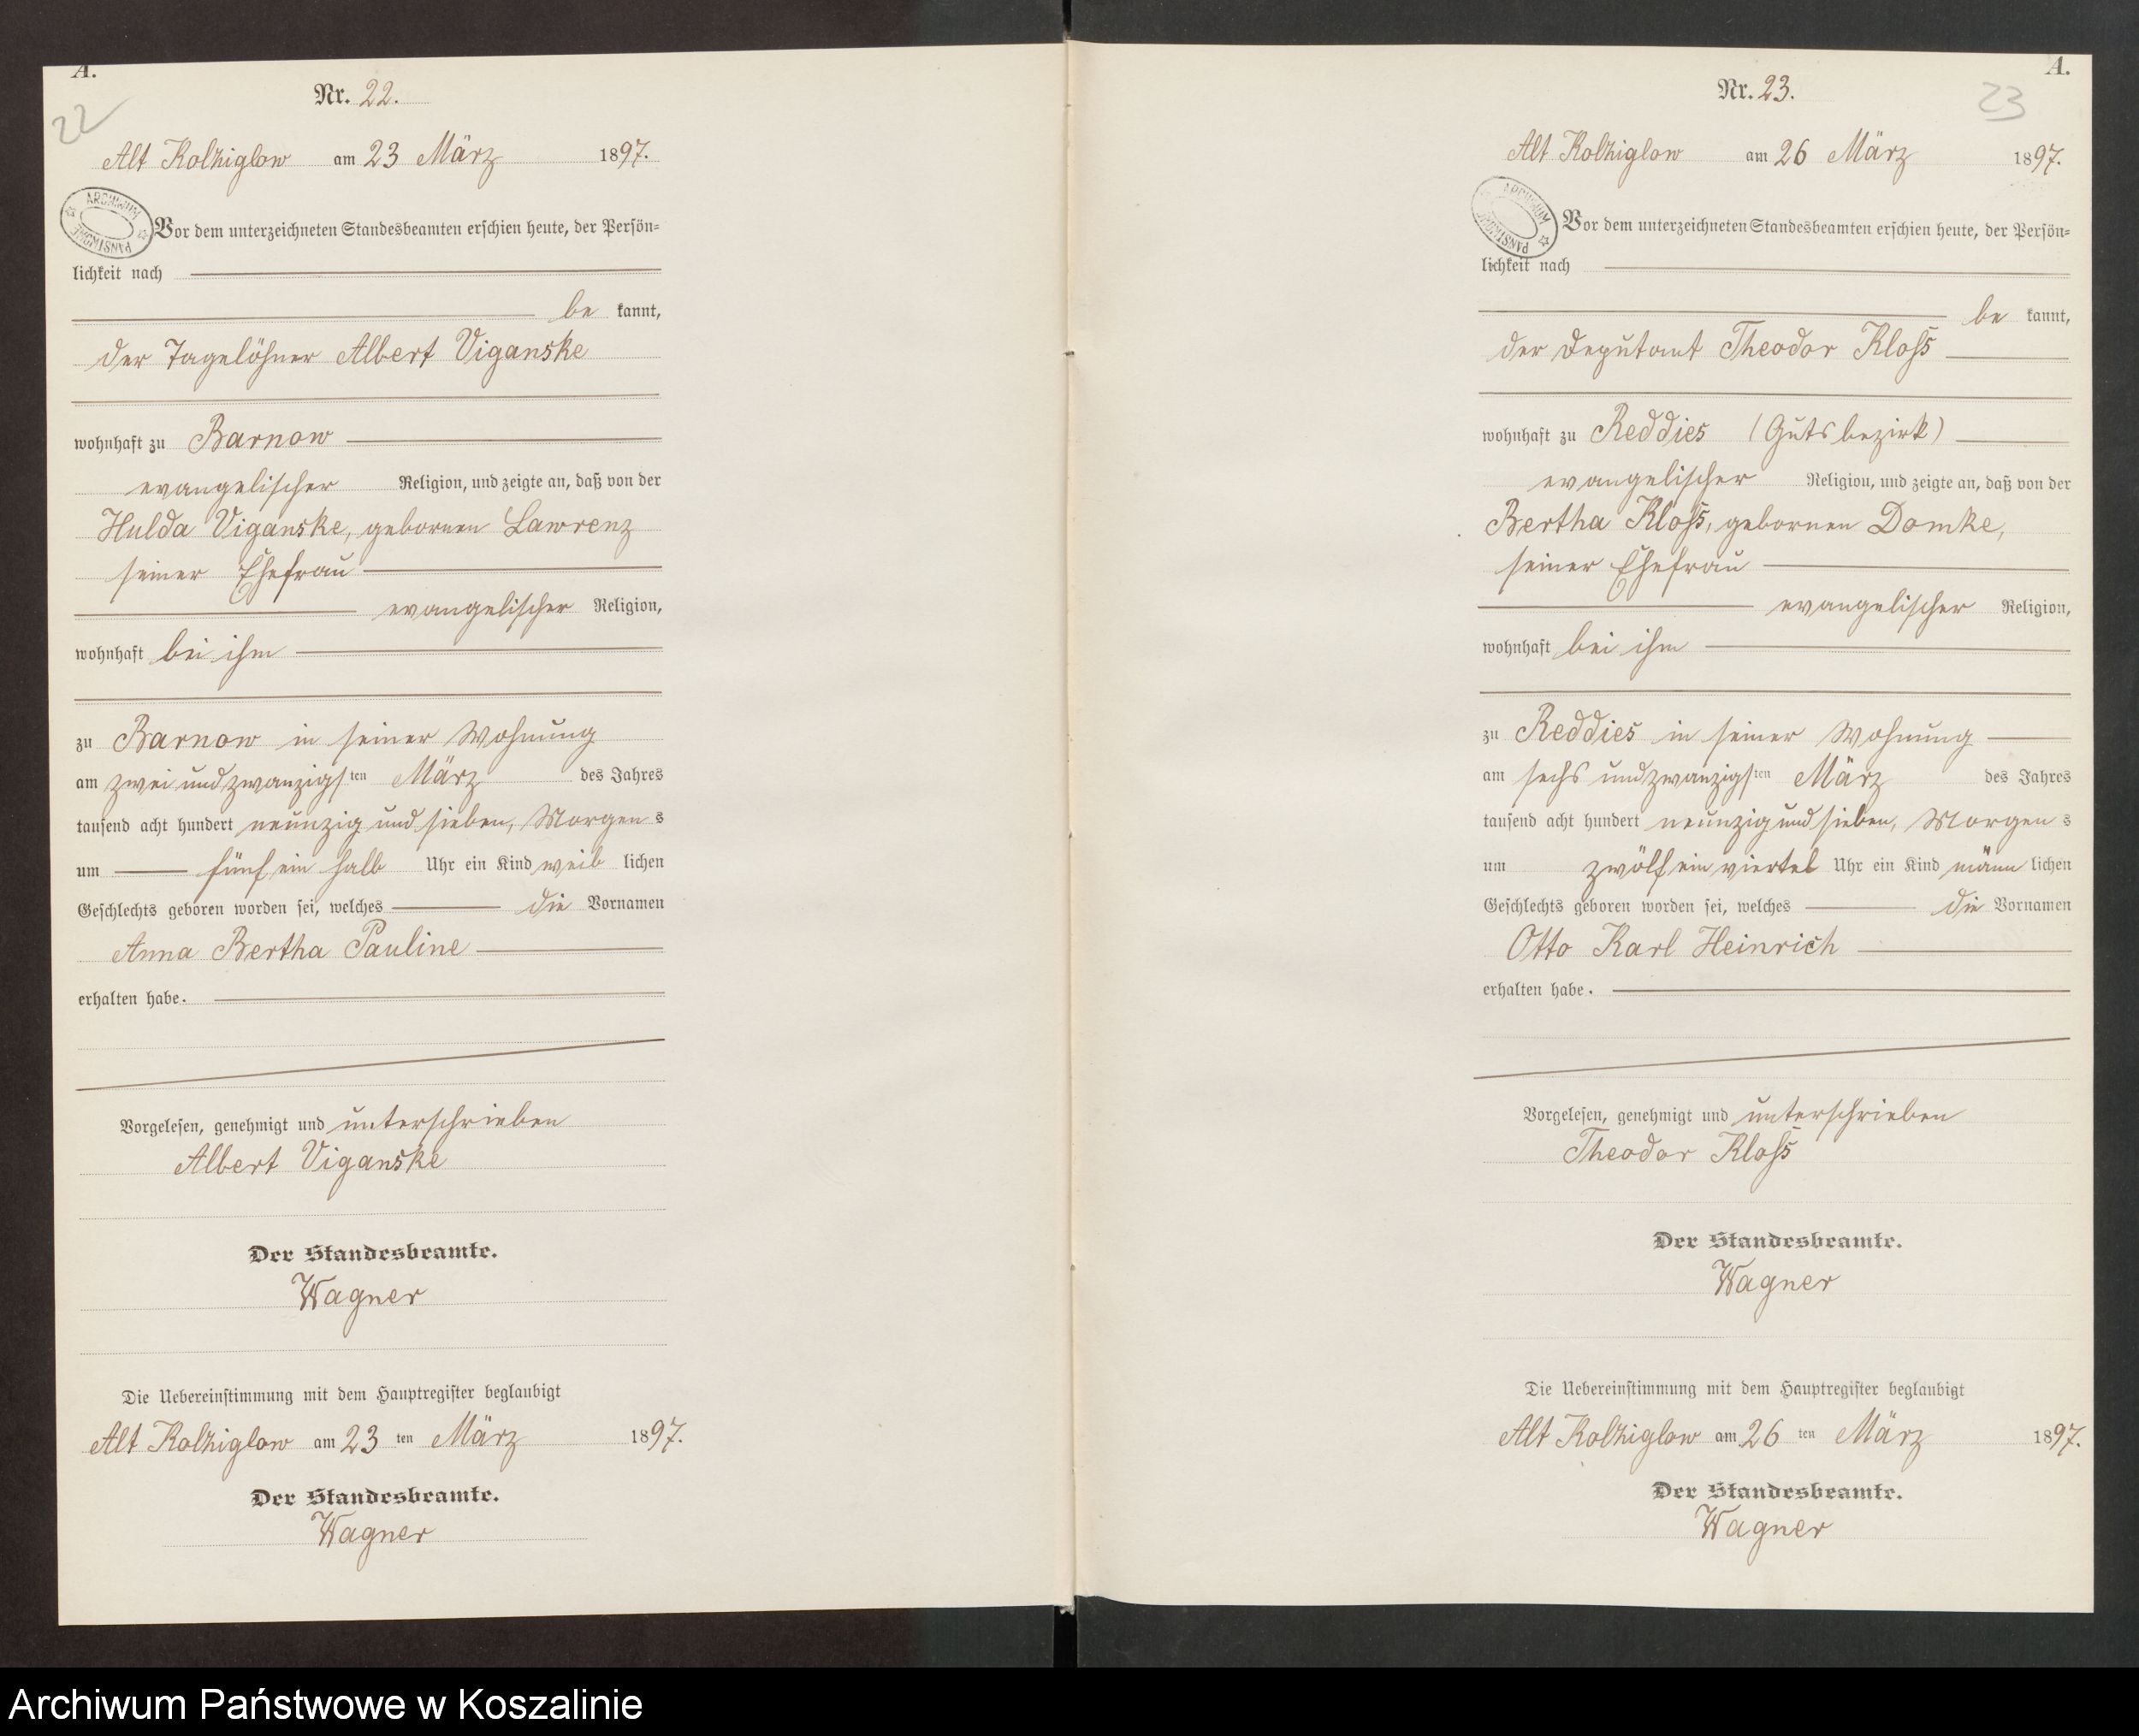 A.
Nr. 22.
22
Alt Kolziglow am 23 März 1897.
ARCHIWUM PAŃSTWOWE
Vor dem unterzeichneten Standesbeamten erschien heute, der Persön=
lichkeit nach
be kannt,
der Tagelöhner Albert Viganske
wohnhaft zu Barnow
evangelischer Religion, und zeigte an, daß von der
Hulda Viganske, gebornen Lawrenz
seiner Ehefrau
evangelischer Religion,
wohnhaft bei ihm
zu Barnow in seiner Wohnung
am zwei und zwanzigsten März des Jahres
tausend acht hundert neunzig und sieben, Morgens
um fünf ein halb Uhr ein Kind weiblichen
Geschlechts geboren worden sei, welches die Vornamen
Anna Bertha Pauline
erhalten habe.
Vorgelesen, genehmigt und unterschrieben
Albert Viganske
Der Standesbeamte.
Wagner
Die Uebereinstimmung mit dem Hauptregister beglaubigt
Alt Kolziglow am 23 ten März 1897.
Der Standesbeamte.
Wagner
A.
Nr. 23.
23
Alt Kolziglow am 26 März 1897.
ARCHIWUM PAŃSTWOWE
Vor dem unterzeichneten Standesbeamten erschien heute, der Persön=
lichkeit nach
be kannt,
der Deputant Theodor Kloß
wohnhaft zu Reddies (Gutsbezirk)
evangelischer Religion, und zeigte an, daß von der
Bertha Kloß, gebornen Domke,
seiner Ehefrau
evangelischer Religion,
wohnhaft bei ihm
zu Reddies in seiner Wohnung
am sechs und zwanzigsten März des Jahres
tausend acht hundert neunzig und sieben, Morgens
um zwölf ein viertel Uhr ein Kind männlichen
Geschlechts geboren worden sei, welches die Vornamen
Otto Karl Heinrich
erhalten habe.
Vorgelesen, genehmigt und unterschrieben
Theodor Kloß
Der Standesbeamte.
Wagner
Die Uebereinstimmung mit dem Hauptregister beglaubigt
Alt Kolziglow am 26 ten März 1897.
Der Standesbeamte.
Wagner
Archiwum Państwowe w Koszalinie